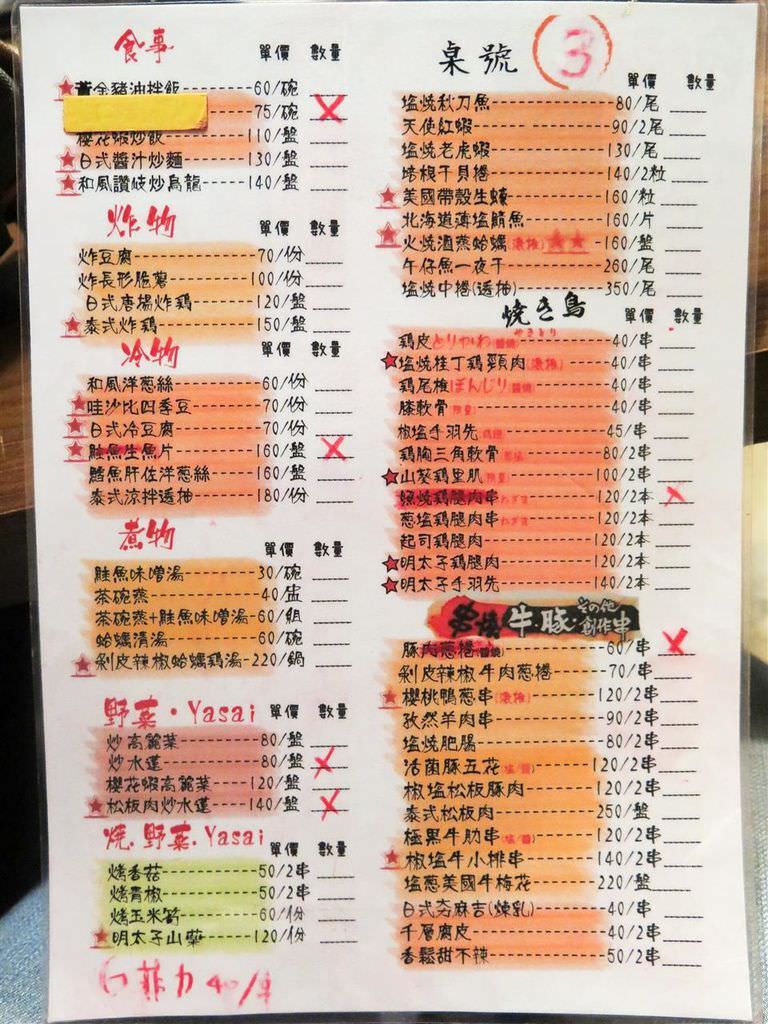 食事 單價 數量
黃金豬油拌飯 60/碗
75/碗 X
櫻花蝦炒飯 110/盤
日式醬汁炒麵 130/盤
和風讚岐炒烏龍 140/盤
炸物 單價 數量
炸豆腐 70/份
炸長形脆薯 100/份
日式唐揚炸鷄 120/盤
泰式炸鷄 150/盤
冷物 單價 數量
和風洋蔥絲 60/份
哇沙比四季豆 70/份
日式冷豆腐 70/份
鮭魚生魚片 160/盤 X
鱈魚肝佐洋蔥絲 160/盤
泰式涼拌透抽 180/份
煮物 單價 數量
鮭魚味噌湯 30/碗
茶碗蒸 40/盅
茶碗蒸+鮭魚味噌湯 60/組
蛤蠣清湯 60/碗
剝皮辣椒蛤蠣鷄湯 220/鍋
野菜·Yasai 單價 數量
炒高麗菜 80/盤
炒水蓮 80/盤 X
櫻花蝦高麗菜 120/盤
松板肉炒水蓮 140/盤 X
燒.野菜.Yasai 單價 數量
烤香菇 50/2串
烤青椒 50/2串
烤玉米筍 60/份
明太子山藥 120/份
菲力 40/串
桌號 3
單價 數量
塩燒秋刀魚 80/尾
天使紅蝦 90/2尾
塩燒老虎蝦 130/尾
培根干貝捲 140/2粒
美國帶殼生蠔 160/粒
北海道薄塩鯖魚 160/片
火燒酒蒸蛤蠣(激推) 160/盤
午仔魚一夜干 260/尾
塩燒中捲(透抽) 350/尾
燒き鳥 單價 數量
やきとり
鷄皮とりかわ(醬燒) 40/串
塩燒桂丁鷄頸肉(激推) 40/串
鷄尾椎ぼんじり(醬燒) 40/串
膝軟骨(限量) 40/串
椒塩手羽先 45/串
鷄胸三角軟骨 80/2串
山葵鷄里肌(限量) 100/2串
照燒鷄腿肉串ねぎま 120/2本 X
蔥塩鷄腿肉串ねぎま 120/2本
起司鷄腿肉 120/2本
明太子鷄腿肉 120/2本
明太子手羽先 140/2本
串燒 牛.豚.その他創作串
豚肉蔥捲(醬燒) 60/串 X
剝皮辣椒牛肉蔥捲 70/串
櫻桃鴨蔥串(激推) 120/2串
孜然羊肉串 90/2串
塩燒肥腸 80/2串
活菌豚五花(塩/醬) 120/2串
椒塩松板豚肉 120/2串
泰式松板肉 250/盤
極黑牛肋串(塩/醬) 120/2串
椒塩牛小排串 140/2串
塩蔥美國牛梅花 220/盤
日式夯麻吉(煉乳) 40/串
千層腐皮 40/2串
香鬆甜不辣 50/2串